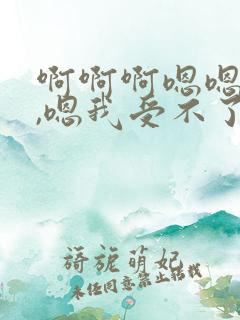 啊啊啊嗯嗯
,嗯我受不了
旖旎萌妃
未经同意禁止转载